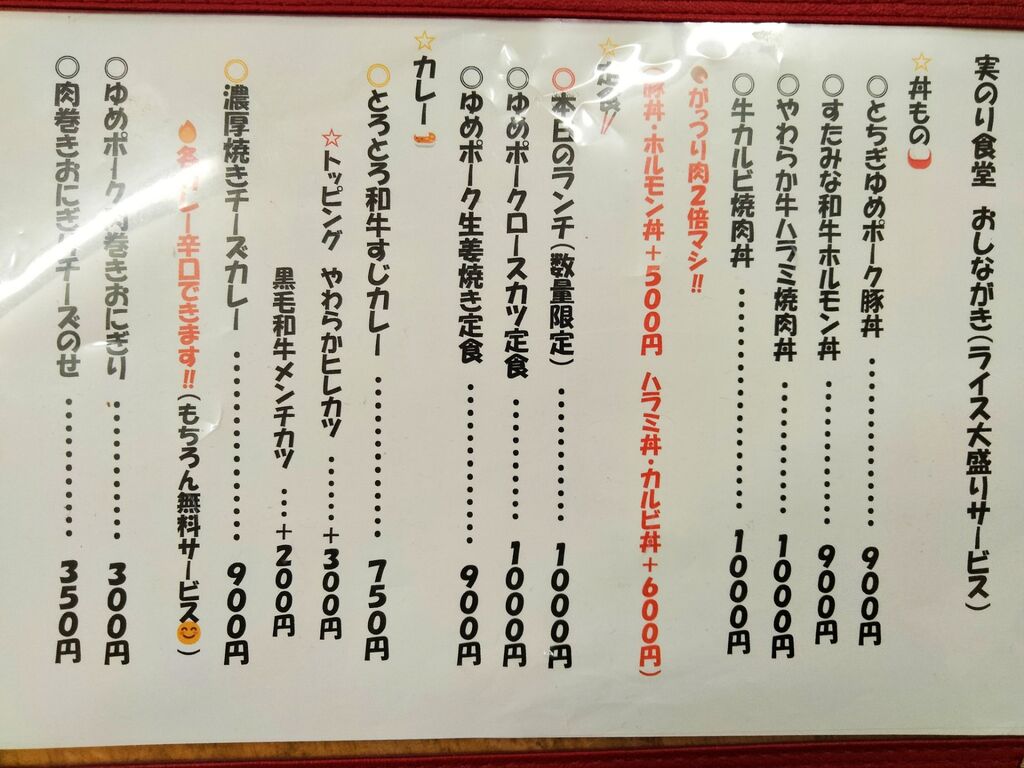 実のり食堂 おしながき(ライス大盛りサービス)
☆丼もの
○とちぎゆめポーク豚丼 ・・・・・・・・・・・ 900円
○すたみな和牛ホルモン丼 ・・・・・・・・・・ 900円
○やわらか牛ハラミ焼肉丼 ・・・・・・・・・・ 1000円
○牛カルビ焼肉丼 ・・・・・・・・・・・・・・・ 1000円
がっつり肉2倍マシ!!
豚丼・ホルモン丼+500円 ハラミ丼・カルビ丼+600円)
☆定食
○本日のランチ(数量限定) ・・・・・・・・・・ 1000円
○ゆめポークロースカツ定食 ・・・・・・・・・ 1000円
○ゆめポーク生姜焼き定食 ・・・・・・・・・・・ 900円
☆カレー
○とろとろ和牛すじカレー ・・・・・・・・・・・ 750円
☆トッピング やわらかヒレカツ ・・・・・・+300円
黒毛和牛メンチカツ ・・・+200円
○濃厚焼きチーズカレー ・・・・・・・・・・・・・ 900円
各カレー辛口できます!!(もちろん無料サービス😊)
○ゆめポーク肉巻きおにぎり ・・・・・・・・・・ 300円
○肉巻きおにぎりチーズのせ ・・・・・・・・・・ 350円